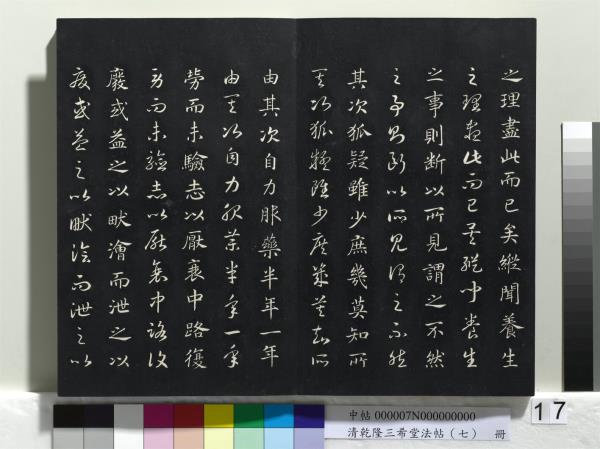 之理盡此而已矣縱聞養生
之理盡此而已矣縱聞養生
之事則斷以所見謂之不然
之事則斷以所見謂之不然
其次狐疑雖少庶幾莫知所
其次狐疑雖少庶幾莫知所
由其次自力服藥半年一年
由其次自力服藥半年一年
勞而未驗志以厭衰中路復
勞而未驗志以厭衰中路復
廢或益之以畎澮而泄之以
廢或益之以畎澮而泄之以
中帖 000007N000000000
清乾隆三希堂法帖（七） 冊
17